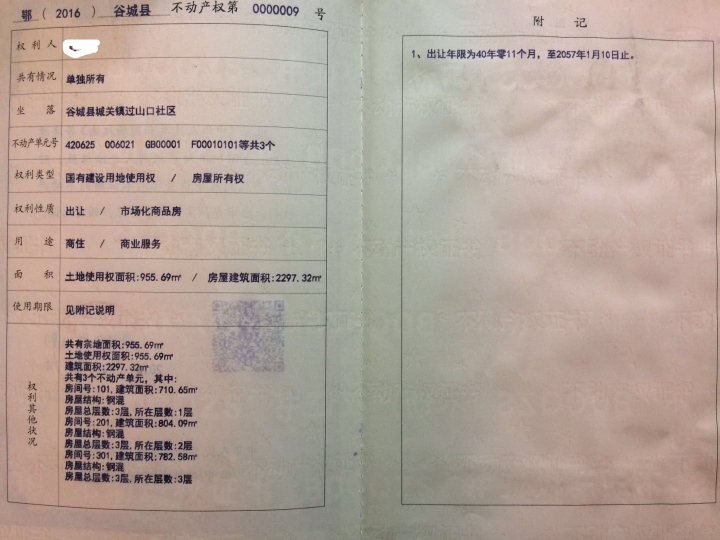 鄂（2016）谷城县 不动产权第 0000009 号
权利人
共有情况 单独所有
坐落 谷城县城关镇过山口社区
不动产单元号 420625 006021 GB00001 F00010101等共3个
权利类型 国有建设用地使用权 / 房屋所有权
权利性质 出让 / 市场化商品房
用途 商住 / 商业服务
面积 土地使用权面积:955.69㎡ / 房屋建筑面积:2297.32㎡
使用期限 见附记说明
权利其他状况
共有宗地面积:955.69㎡
土地使用权面积:955.69㎡
建筑面积:2297.32㎡
共有3个不动产单元，其中:
房间号:101,建筑面积:710.65㎡
房屋结构:钢混
房屋总层数:3层,所在层数:1层
房间号:201,建筑面积:804.09㎡
房屋结构:钢混
房屋总层数:3层,所在层数:2层
房间号:301,建筑面积:782.58㎡
房屋结构:钢混
房屋总层数:3层,所在层数:3层
附记
1、出让年限为40年零11个月，至2057年1月10日止。